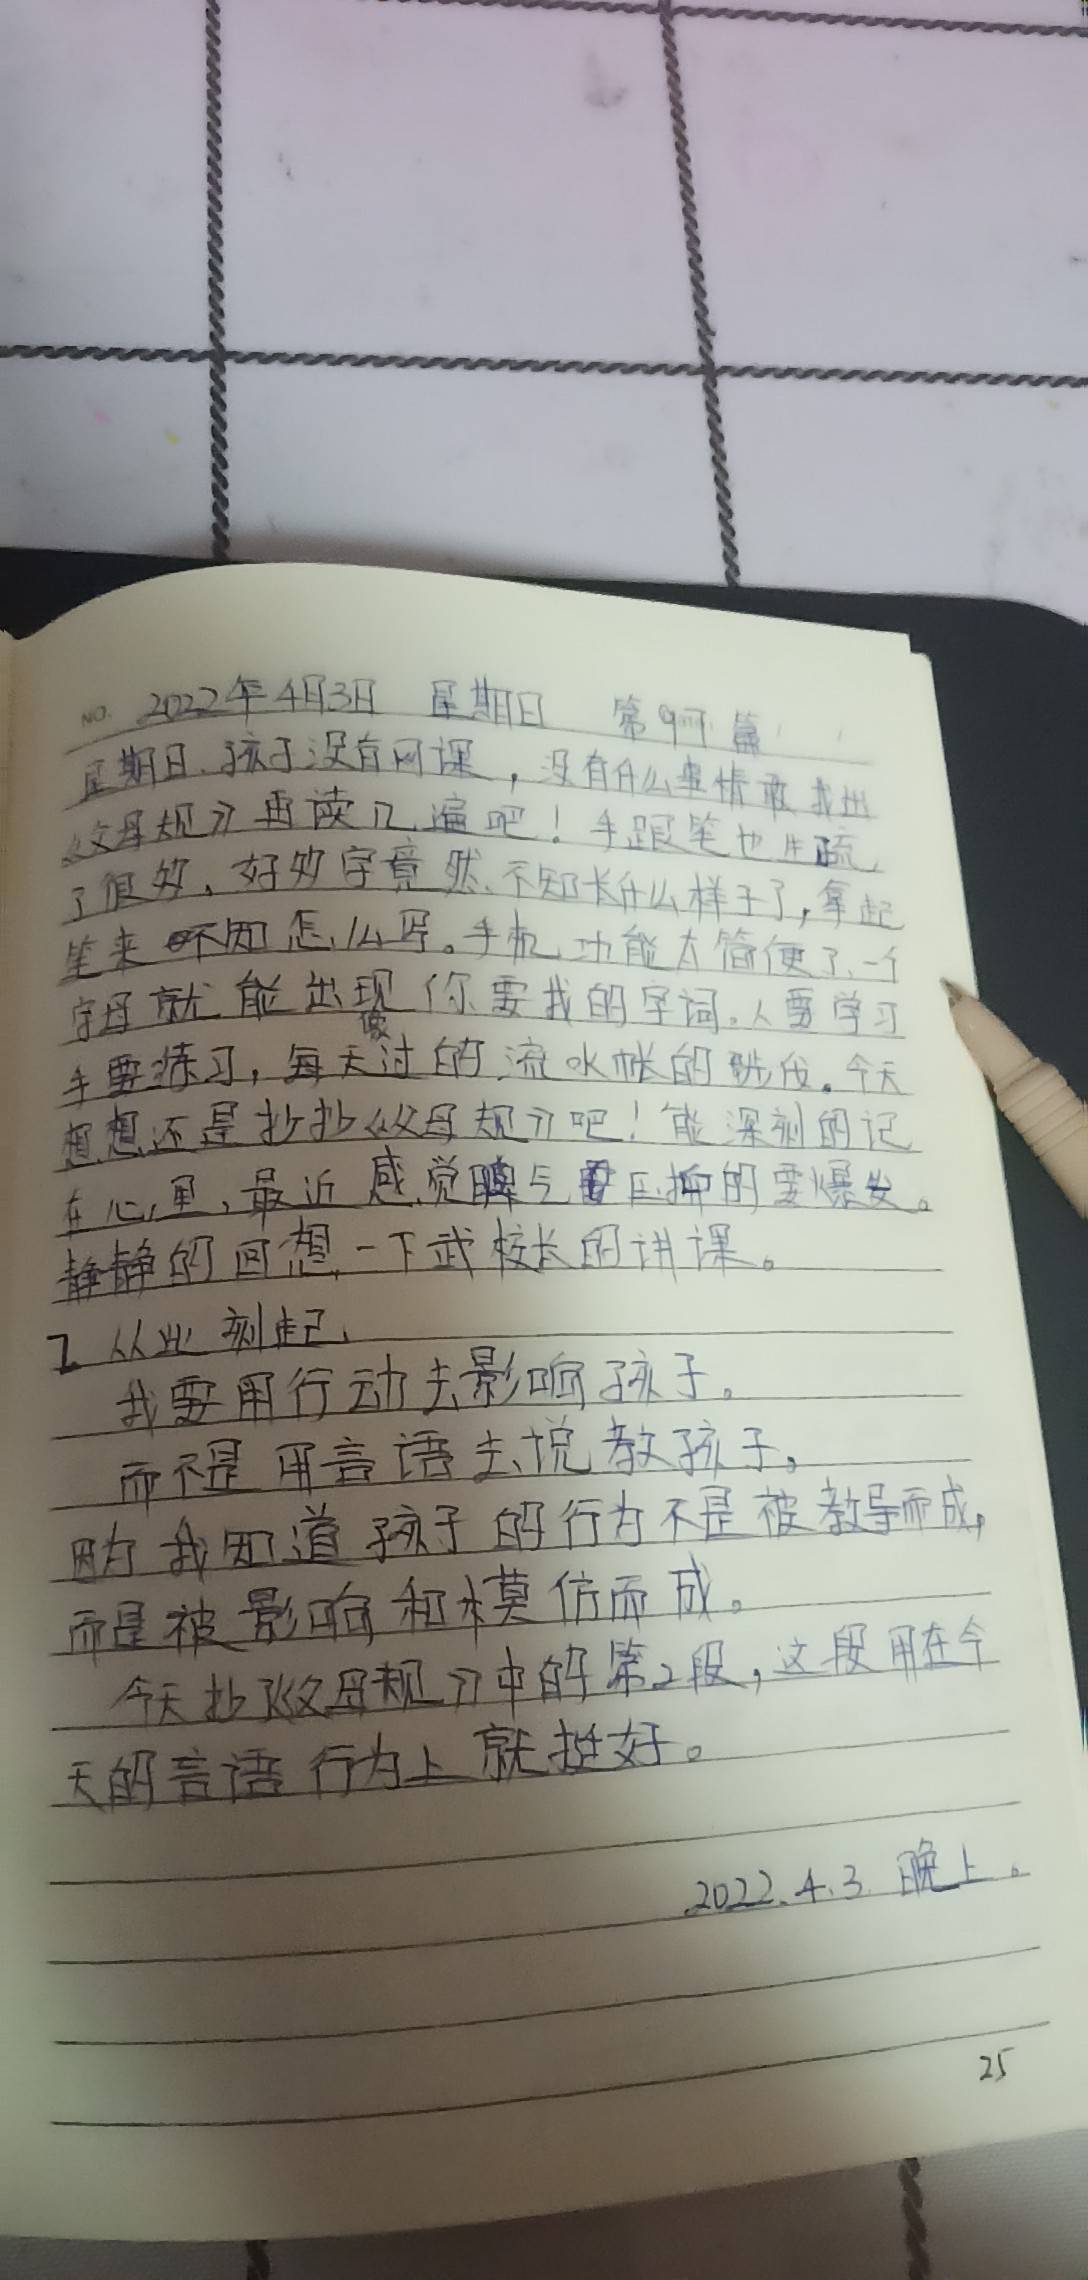 NO. 2022年4月3日 星期日 第9 篇
星期日、孩子没有网课，没有什么事情敢找出
《父母规》再读几遍吧！手跟笔也生疏
了很多，好多字竟然不知长什么样子了，拿起
笔来不知怎么写。手机功能太简便了、一个
字母就能出现你要找的字词。人要学习
手要练习，每天像过的流水帐的 。今天
想想还是抄抄《父母规》吧！能深刻的记
在心里，最近感觉脾气 压抑的要爆发。
静静的回想一下武校长的讲课。
2 从此刻起、
我要用行动去影响孩子。
而不是用言语去说教孩子。
因为我知道孩子的行为不是被教导而成，
而是被影响和模仿而成。
今天抄《父母规》中的第2段，这段用在今
天的言语行为上就挺好。
2022.4.3.晚上。
25